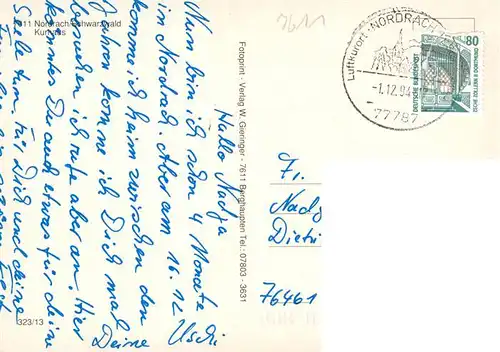 7611 Nordrach/Schwarzwald
Kurhaus
Hallo Nadja
Nun bin ich schon 4 Monate
in Nordrach. Aber am 16.12
komme ich heim zwischen den
Jahren komme ich Dich mal
besuchen ich rufe aber an. Hier
könntest Du auch etwas für deine
Seele tun. Für Dich und deine
Fest
Deine Uschi
323/13
Fotoprint - Verlag W. Gieringer - 7611 Berghaupten Tel.: 07803 - 3631
7611
Luftkurort · NORDRACH
-1.12.94
77787
80
DEUTSCHE BUNDESPOST
ZECHE ZOLLERN II DORTMUND
Fr.
Nadj
Dietri
76461